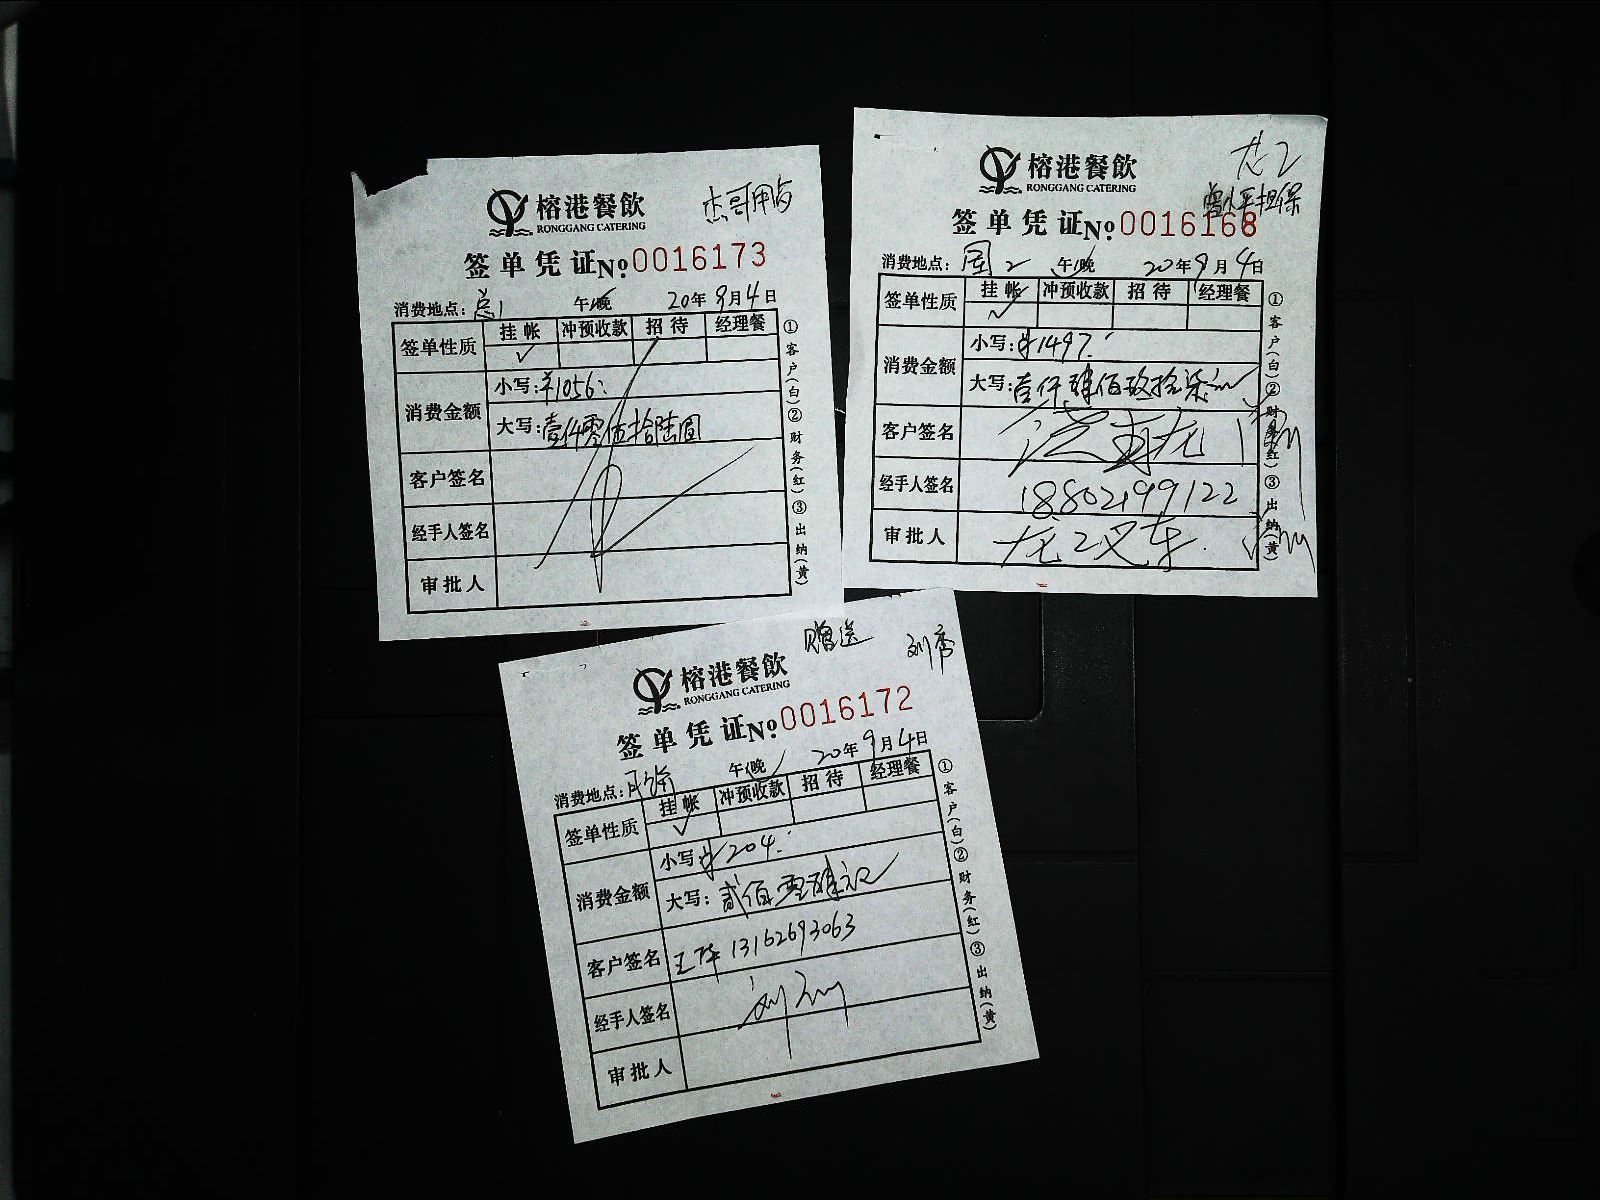 榕港餐飲
RONGGANG CATERING
杰哥用与
签单凭证 No 0016173
消费地点: 总1 午/晚 20年9月4日
签单性质 挂帐 冲预收款 招待 经理餐
✓
消费金额 小写: ¥1056:
大写: 壹仟零伍拾陆圆
客户签名
经手人签名
审批人
①客户(白)②财务(红)③出纳(黄)
龙2
榕港餐飲
RONGGANG CATERING
曾小平担保
签单凭证 No 0016168
消费地点: 国2 午/晚 20年9月4日
签单性质 挂帐 冲预收款 招待 经理餐
✓
消费金额 小写: ¥1497.
大写: 壹仟肆佰玖拾柒元
客户签名
经手人签名 18802199122
审批人
①客户(白)②财务(红)③出纳(黄)
赠送
榕港餐飲
RONGGANG CATERING
签单凭证 No 0016172
消费地点: 午/晚 20年9月4日
签单性质 挂帐 冲预收款 招待 经理餐
✓
消费金额 小写: ¥204.
大写: 贰佰零肆元
客户签名 13162693063
经手人签名
审批人
①客户(白)②财务(红)③出纳(黄)